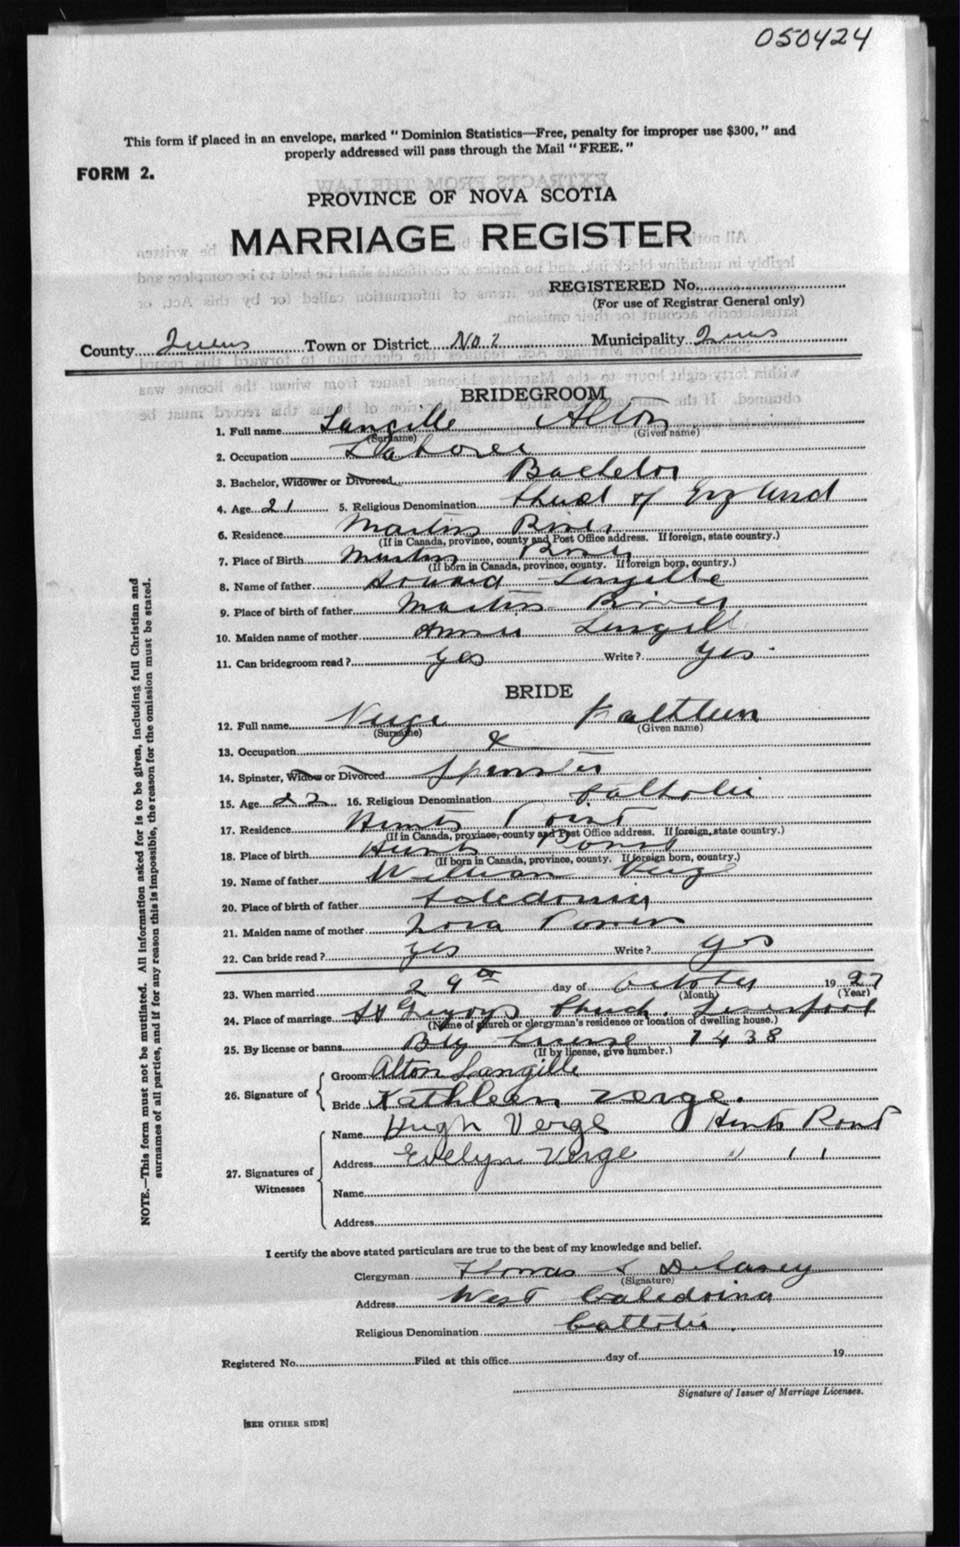 050424
This form if placed in an envelope, marked "Dominion Statistics—Free, penalty for improper use $300," and
properly addressed will pass through the Mail "FREE."
FORM 2.
PROVINCE OF NOVA SCOTIA
MARRIAGE REGISTER
REGISTERED No.
(For use of Registrar General only)
County Queens Town or District No. 2 Municipality Queens
BRIDEGROOM
1. Full name Langille Alton
(Surname) (Given name)
2. Occupation Laborer
3. Bachelor, Widower or Divorced Bachelor
4. Age 21 5. Religious Denomination Church of England
6. Residence Martins River
(If in Canada, province, county and Post Office address. If foreign, state country.)
7. Place of Birth Martins River
(If born in Canada, province, county. If foreign born, country.)
8. Name of father Howard Langille
9. Place of birth of father Martins River
10. Maiden name of mother Annie Langill
11. Can bridegroom read? yes Write? yes
BRIDE
12. Full name Verge Kathleen
(Surname) (Given name)
13. Occupation
14. Spinster, Widow or Divorced Spinster
15. Age 22 16. Religious Denomination Catholic
17. Residence Hunts Point
(If in Canada, province, county and Post Office address. If foreign, state country.)
18. Place of birth Hunts Point
(If born in Canada, province, county. If foreign born, country.)
19. Name of father William Verge
20. Place of birth of father Caledonia
21. Maiden name of mother
22. Can bride read? yes Write? yes
23. When married 29th day of October 1927
(Month) (Year)
24. Place of marriage St Gregorys Church. Liverpool
(Name of church or clergyman's residence or location of dwelling house.)
25. By license or banns By License 7438
(If by license, give number.)
26. Signature of Groom Alton Langille
Bride Kathleen Verge.
27. Signatures of Witnesses
Name Hugh Verge Hunts Point
Address Evelyn Verge " " "
Name
Address
I certify the above stated particulars are true to the best of my knowledge and belief.
Clergyman Thomas Delaney
(Signature)
Address West Caledonia
Religious Denomination Catholic.
Registered No. Filed at this office day of 19
Signature of Issuer of Marriage Licenses.
[SEE OTHER SIDE]
NOTE.—This form must not be mutilated. All information asked for is to be given, including full Christian and
surnames of all parties, and if for any reason this is impossible, the reason for the omission must be stated.